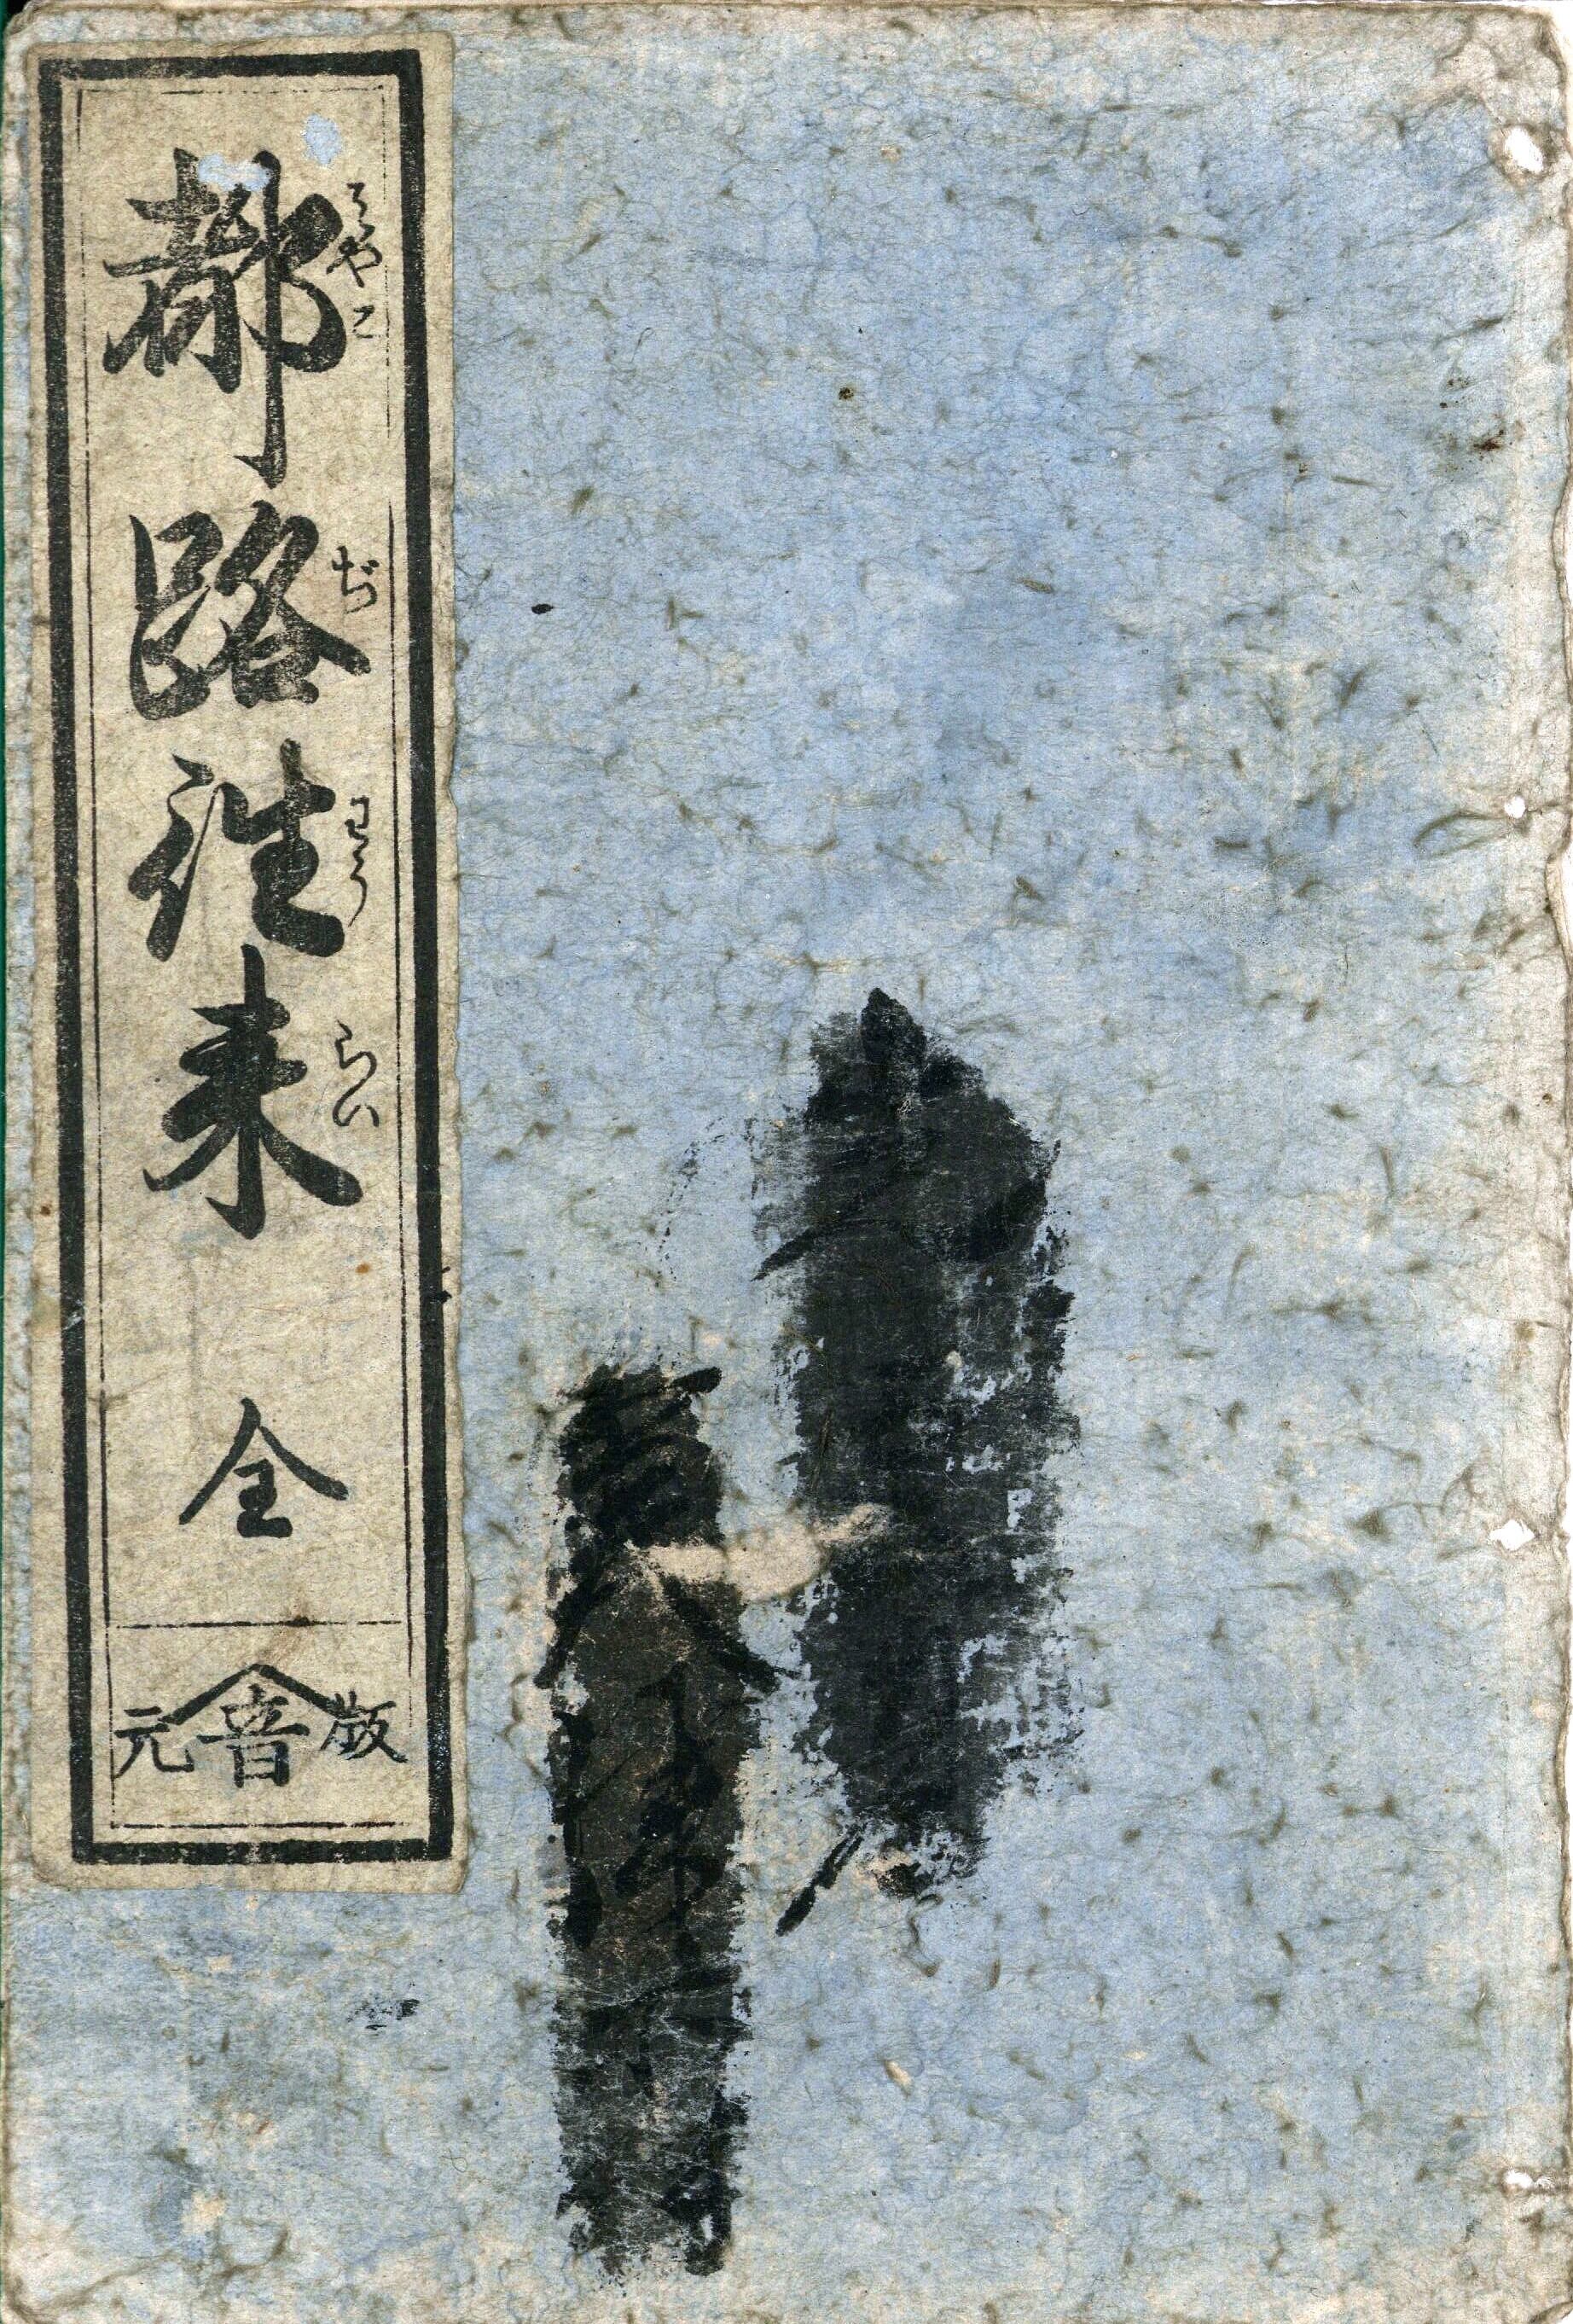 都路往來 全
みやこ ぢ わう らい
元 音 版